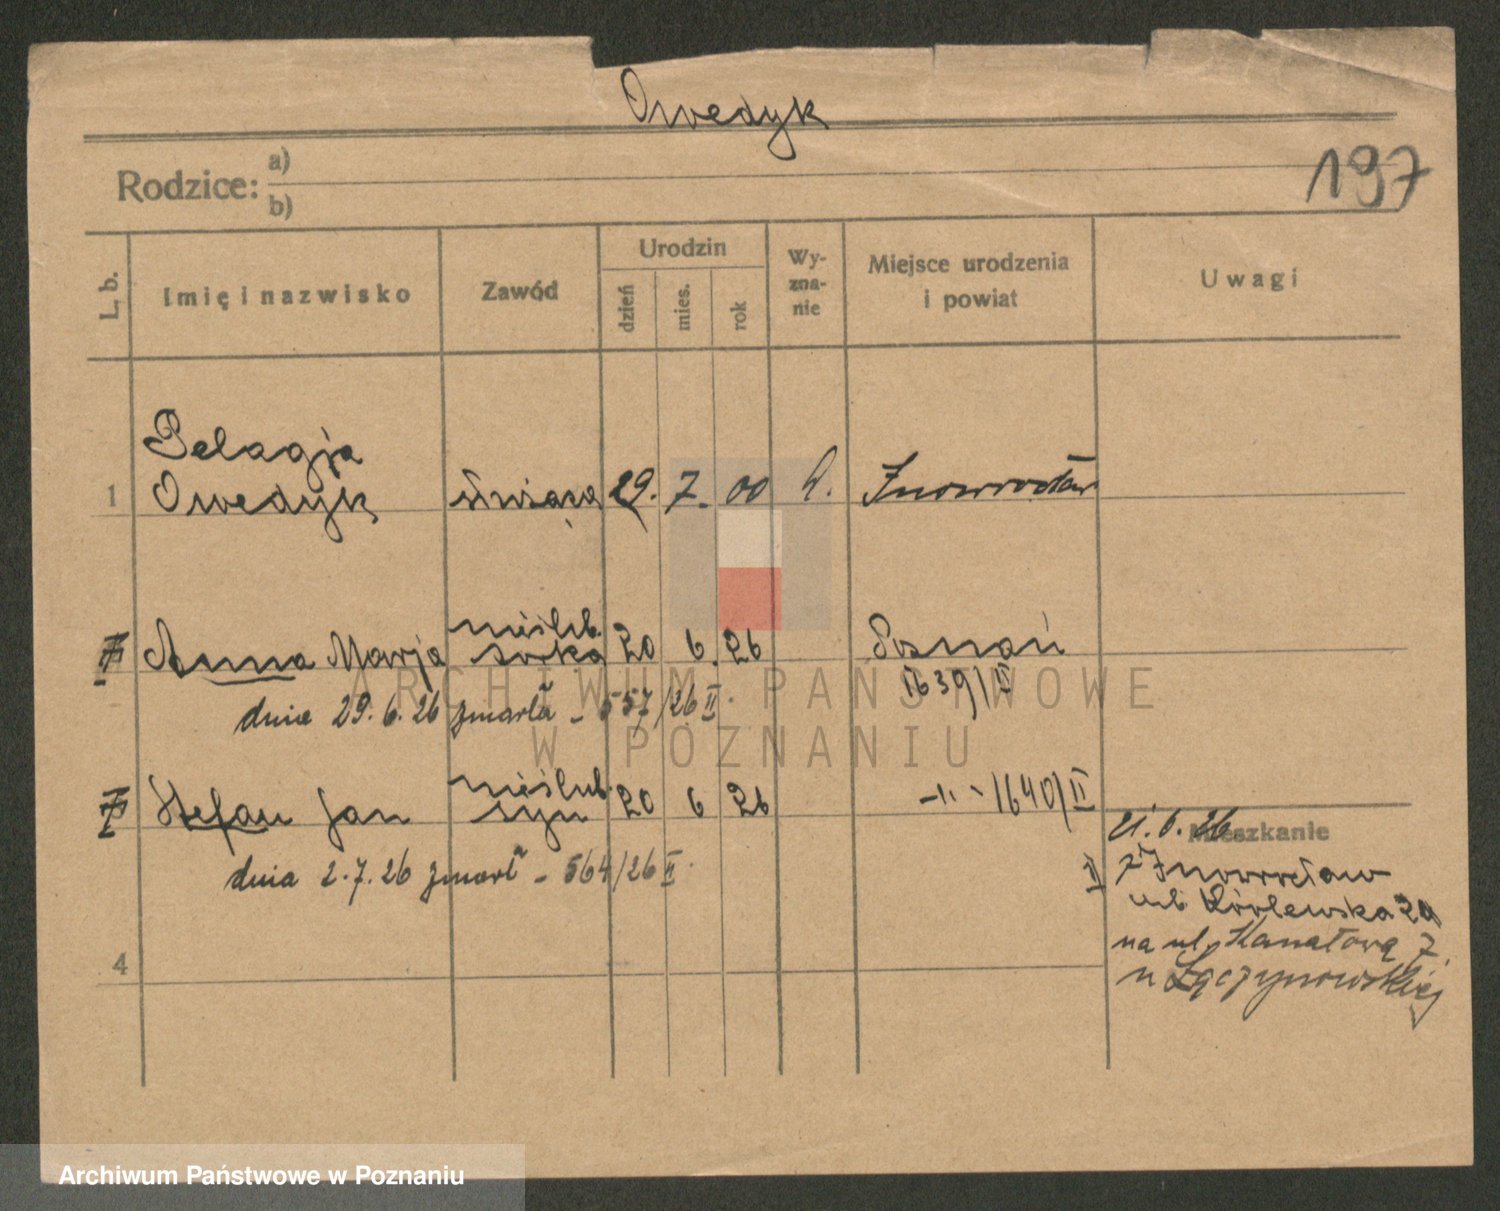 Owedyk
197
Rodzice: a)
b)
L. b.
Imię i nazwisko
Zawód
Urodzin
dzień
mies.
rok
Wy-
zna-
nie
Miejsce urodzenia
i powiat
Uwagi
Pelagja
1 Owedyk służąca 29. 7. 00 Inowrocław
nieślub.
Anna Marja córka 20 6. 26 Poznań
1639/II
dnia 29.6.26 zmarła - 557/26 II.
nieślub.
Stefan Jan syn 20 6 26 -"- 1640/II
dnia 2.7.26 zmarł - 564/26 II.
Mieszkanie
21.6.26
II z Inowrocław
Królewska 20
na ul. Kanałową 7
u Łączynowskiej
4
ARCHIWUM PAŃSTWOWE
W POZNANIU
Archiwum Państwowe w Poznaniu